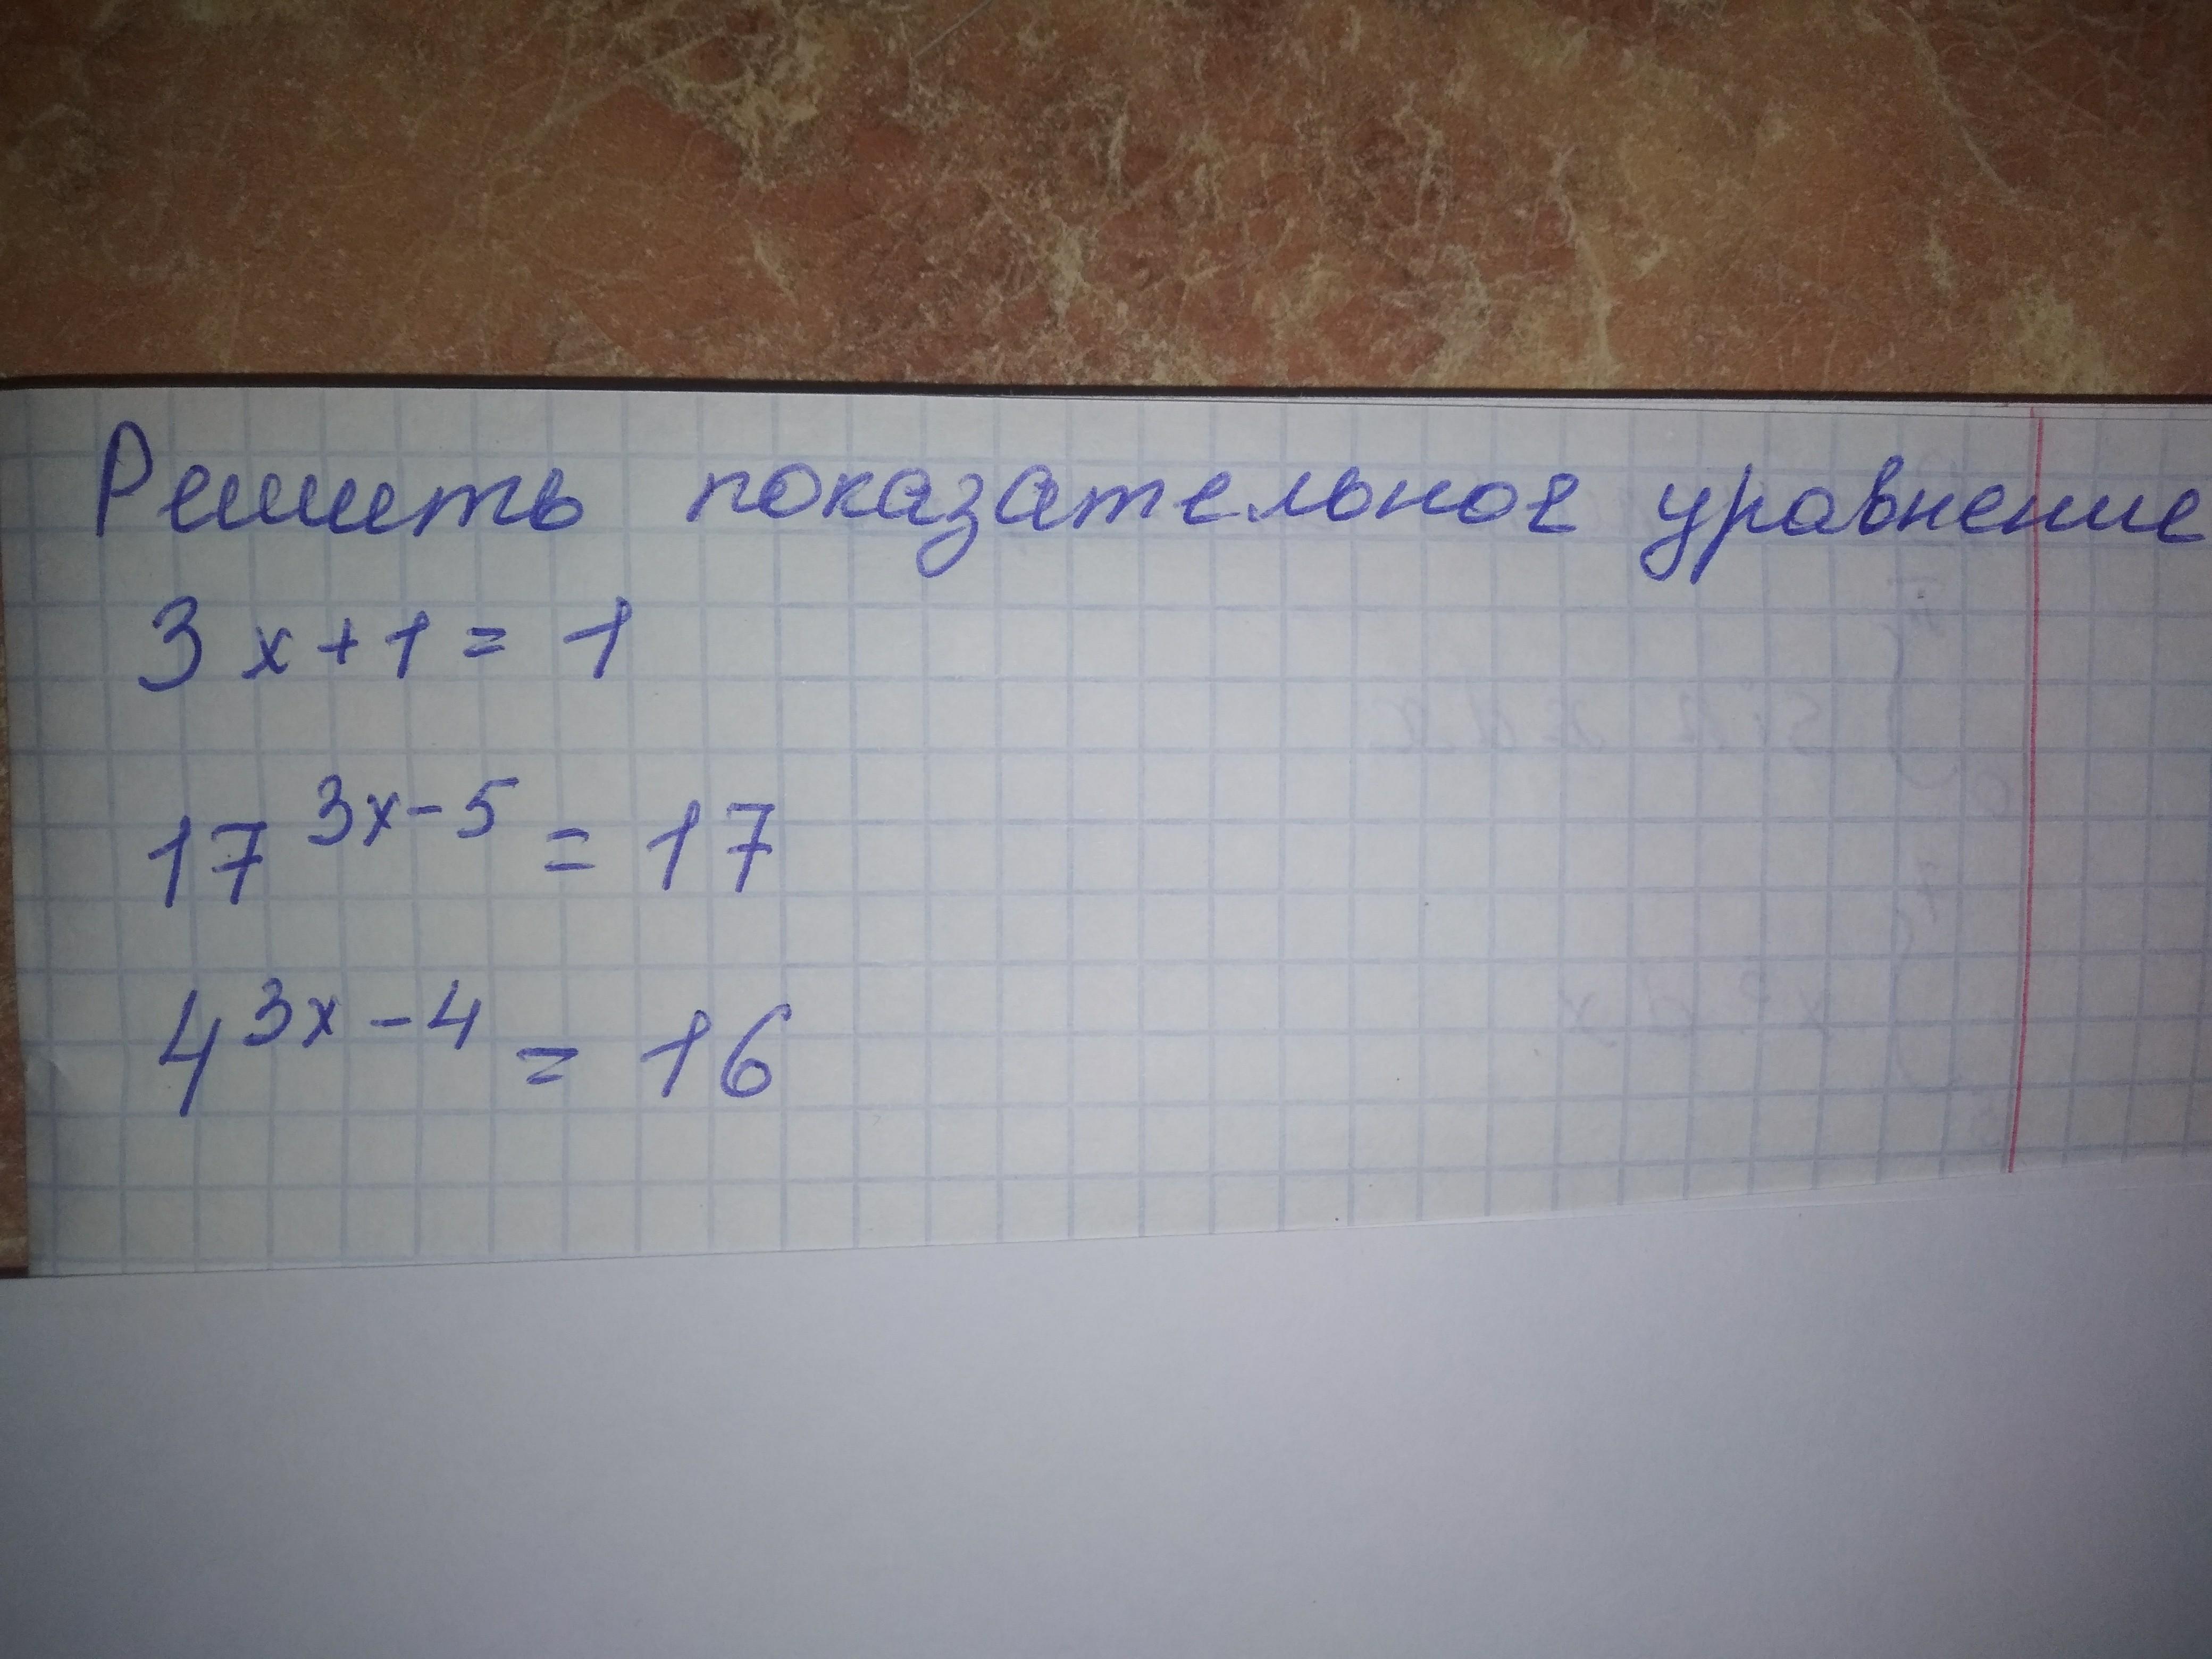 Решить показательное уравнение
3x+1=1
17^{3x-5}=17
4^{3x-4}=16